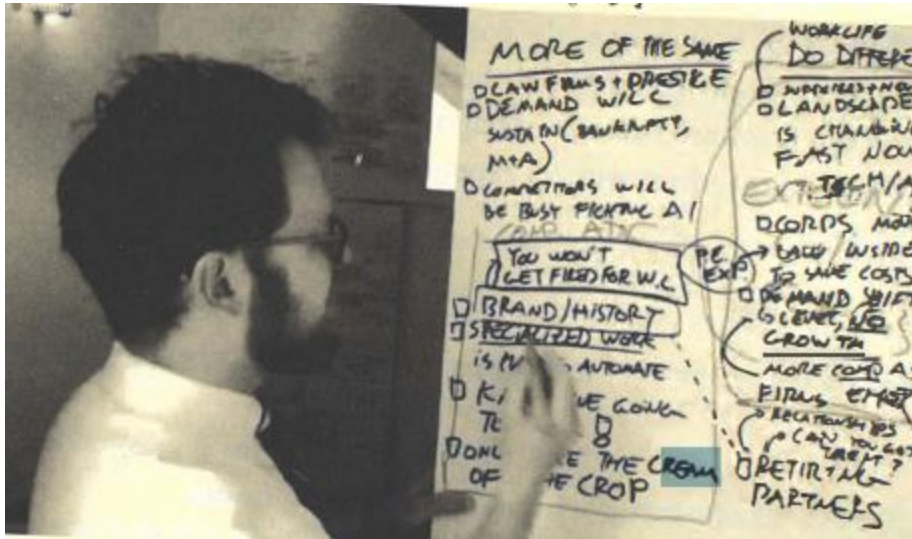 MORE OF THE SAME
LAW FIRMS + PRESTIGE
DEMAND WILL
SUSTAIN (BANKRUPTY,
M+A)
COMPETITORS WILL
BE BUSY FIGHTING AI
YOU WON'T
GET FIRED FOR W.C
BRAND/HISTORY
SPECIALIZED WORK
IS AUTOMATE
GOING
THE CREAM
OF THE CROP
P.E.
EXP
WORKLIFE
DO DIFFERE
LANDSCAPE
IS CHANGING
FAST NOW
TECH/A
CORPS MOV
INSIDE
TO SAVE COSTS
DEMAND SHIFT
LEVEL, NO
GROWTH
MORE COMP A
FIRMS
RELATIONSHIPS
CAN YOU GET
THEM?
RETIRING
PARTNERS